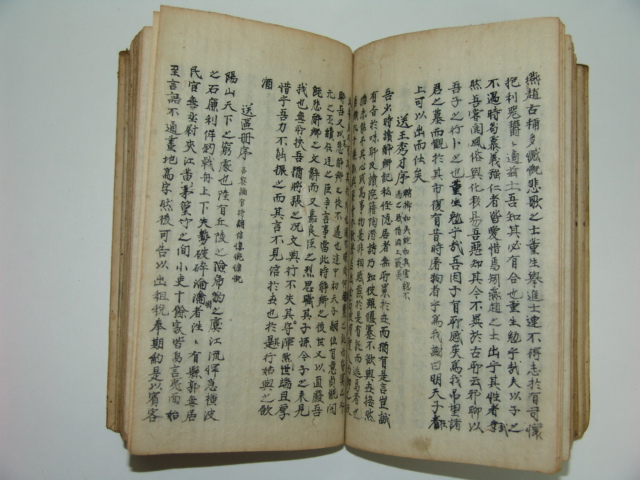 燕趙古稱多感慨悲歌之士董生擧進士連不得志於有司懷
抱利器鬱〻適茲土吾知其必有合也董生勉乎哉夫以子之
不遇時苟慕義强仁者皆愛惜焉矧燕趙之士出乎其性者哉
然吾嘗聞風俗與化移易吾惡知其今不異於古所云邪聊以
吾子之行卜之也董生勉乎哉吾因子有所感矣爲我吊望諸
君之墓而觀於其市復有昔時屠狗者乎爲我謝曰明天子在
上可以出而仕矣
送王秀才序
吾少時讀醉鄉記私怪隱居者無所累於世而猶有是言豈誠
有旨於味耶及讀阮籍陶潛詩乃知彼雖偃蹇不欲與世接然
猶未能平其心或爲事物是非相感發於是有託而逃焉者也
醉鄉之徒不遇也建中初天子嗣位有意貞觀開
元之丕績在廷之臣爭言事當此時醉鄉之後世又以直廢吾
旣悲醉鄉之文辭而又嘉良臣之烈思識其子孫今子之來見
我也無所挾吾猶將張之況文與行不失其世守渾然端且厚
惜乎吾力不能振之而其言不見信於世也於其行姑與之飮
酒
送區冊序
陽山天下之窮處也陸有丘陵之險虎豹之虞江流悍急橫波
之石廉利侔釰戟舟上下失勢破碎淪溺者往〻有縣郭無居
民官無丞尉夾江荒茅篁竹之間小吏十餘家皆鳥言夷面始
至言語不通畫地爲字然後可告以出租稅奉期約是以賓客